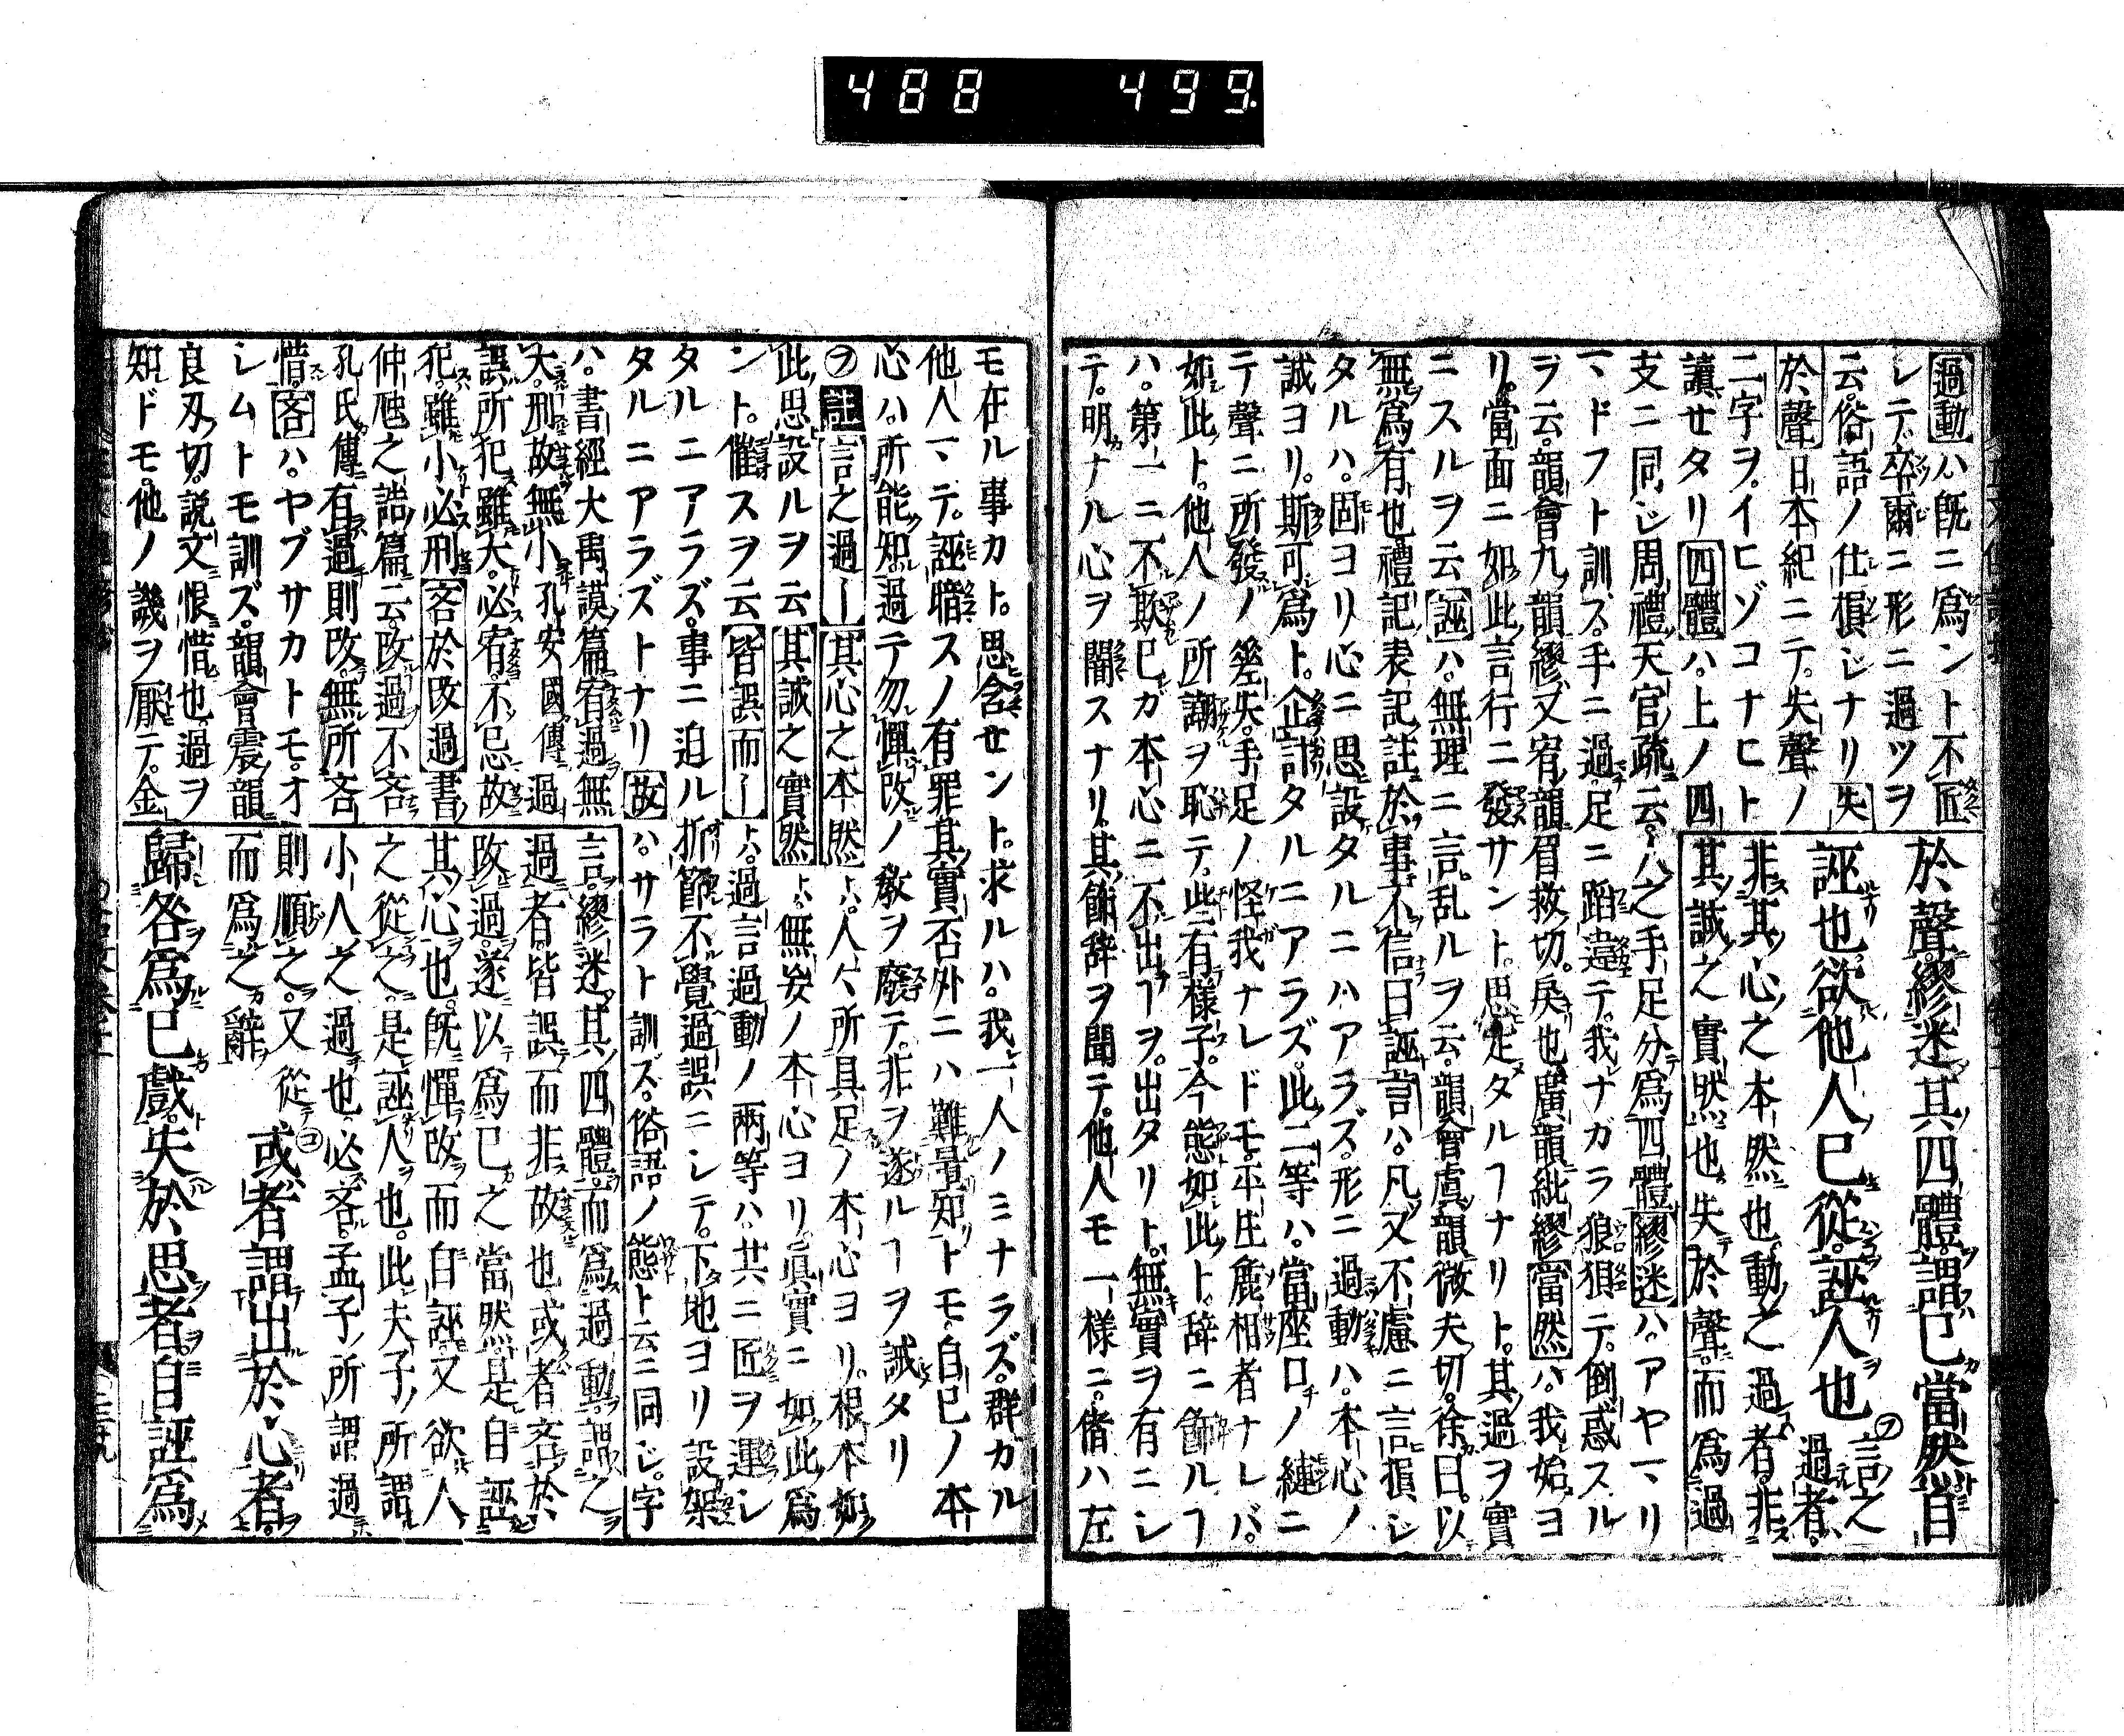 488 499.
過動ハ既ニ爲ント不匠
レテ卒爾ニ形ニ過ツヲ
云俗語ノ仕損じナリ失
於聲日本紀ニテ失聲ノ
二字ヲイヒゾコナヒト
讀せタリ四體ハ上ノ四
支ニ同じ周禮天官疏云ハ之手足分爲四體繆迷ハアヤマリ
マドフト訓ス手ニ過足ニ蹈違テ我ナガラ狼狽テ倒惑スル
ヲ云韻會九韻繆又宥韻眉救切戾也廣韻紕繆當然ハ我始ヨ
リ當面ニ如此言行ニ發サント思定タルヿナリト其過ヲ實
ニスルヲ云誣ハ無理ニ言乱ルヲ云韻會虞韻微夫切徐曰以
無爲有也禮記表記註於事不信曰誣言ハ凡又不慮ニ言損レ
タルハ固ヨリ心ニ思設タルニハアラズ形ニ過動ハ本心ノ
誠ヨリ斯可爲ト企計タルニアラズ此二等ハ當座口ノ縺ニ
テ聲ニ所發ノ差失手足ノ怪我ナレドモ平庄麁相者ナレバ
如此ト他人ノ所謝ヲ恥テ些有樣子今態如此ト辞ニ飾ルヿ
ハ第一ニ不欺已ガ本心ニ不出ヿヲ出タリト無實ヲ有ニレ
テ明ナル心ヲ闇スナリ其飾辞ヲ聞テ他人モ一樣ニ偖ハ左
於聲繆迷其四體謂已當然自
誣也欲他人已從誣人也 言之
過者
非其心之本然也動之過者非
其誠之實然也失於聲而爲過
モ在ル事カト思含せント求ルハ我一人ノミナラズ群ガル
他人マテ誣職スノ有罪其實否外ニハ難量知トモ自已ノ本
心ハ所能知過テ勿憚改ノ敎ヲ廢テ非ヲ遂ルヿヲ誠タリ
註言之過ー其心之本然トハ人々所具足ノ本心ヨリ根本如
此思設ルヲ云其誠之實然トハ無妄ノ本心ヨリ眞實ニ如此爲
ント催スヲ云皆誤而ートハ過言過動ノ兩等ハ共ニ匠ヲ運レ
タルニアラズ事ニ迫ル折節不覺過誤ニシテ下地ヨリ設架
タルニアラズトナリ故ハサラト訓ズ俗語ノ態ト云ニ同じ字
ハ書經大禹謨篇宥過無
大刑故無小孔安國傳過
誤所犯雖大必宥不忌故
犯雖小必刑吝於改過書
仲虺之誥篇云改過不吝
孔氏傳有過則改無所吝
惜吝ハヤブサカトモオ
レムトモ訓ズ韻會震韻
良刃切説文恨惜也過ヲ
知レドモ他ノ譏ヲ厭テ金
言繆迷其四體而爲過動謂之
過者皆誤而非故也或者吝於
改過遂以爲已之當然是自誣
其心也既憚改而自誣又欲人
之從之是誣人也此夫子所謂
小人之過也必吝孟子所謂過
則順之又從
而爲之辭 或者謂出於心者
歸咎爲已戲失於思者自誣爲